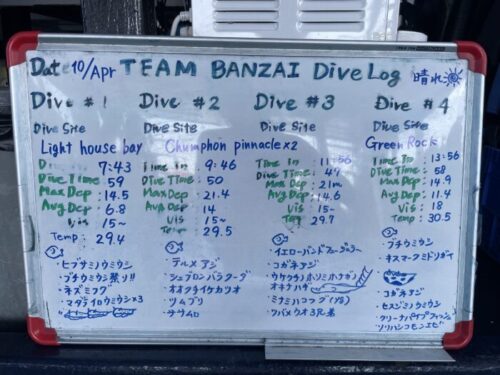 Date 10/Apr TEAM BANZAI Dive Log 晴れ
Dive #1
Dive Site
Light house bay
Time In : 7:43
Dive Time : 59
Max Dep : 14.5
Avg Dep : 6.8
Vis : 15~
Temp : 29.4
・ヒブサミノウミウシ
・ブチウミウシ祭り!!
・ネズミフグ
・マダライロウミウシ×3
Dive #2
Dive Site
Chumphon pinnacle x2
Time In : 9:46
Dive Time : 50
Max Dep : 21.4
Avg Dep : 14
Vis : 15~
Tem : 29.5
・テルメアジ
・シェブロンバラクーダ
・オオクチイケカツオ
・ツムブリ
・ササムロ
Dive #3
Dive Site
Time In : 11:56
Dive Time : 47
Max Dep : 21m
Avg Dep : 14.6
Vis : 15~
Tem : 29.7
・イエローバンドフュージラー
・コガネアジ
・オキナハゼ
・ミナミハコフグ (YG)
・ツバメウオ3兄弟
Dive #4
Dive Site
Green Rock
Time In : 13:56
Dive Time : 58
Max Dep : 14.9
Avg Dep : 11.4
Vis : 18
Temp : 30.5
・ブチウミウシ
・キスマークミドリガイ
・コガネアジ
・セスジミノウミウシ
・クリーナーパイプフィッシュ
・ソリハシコモンエビ